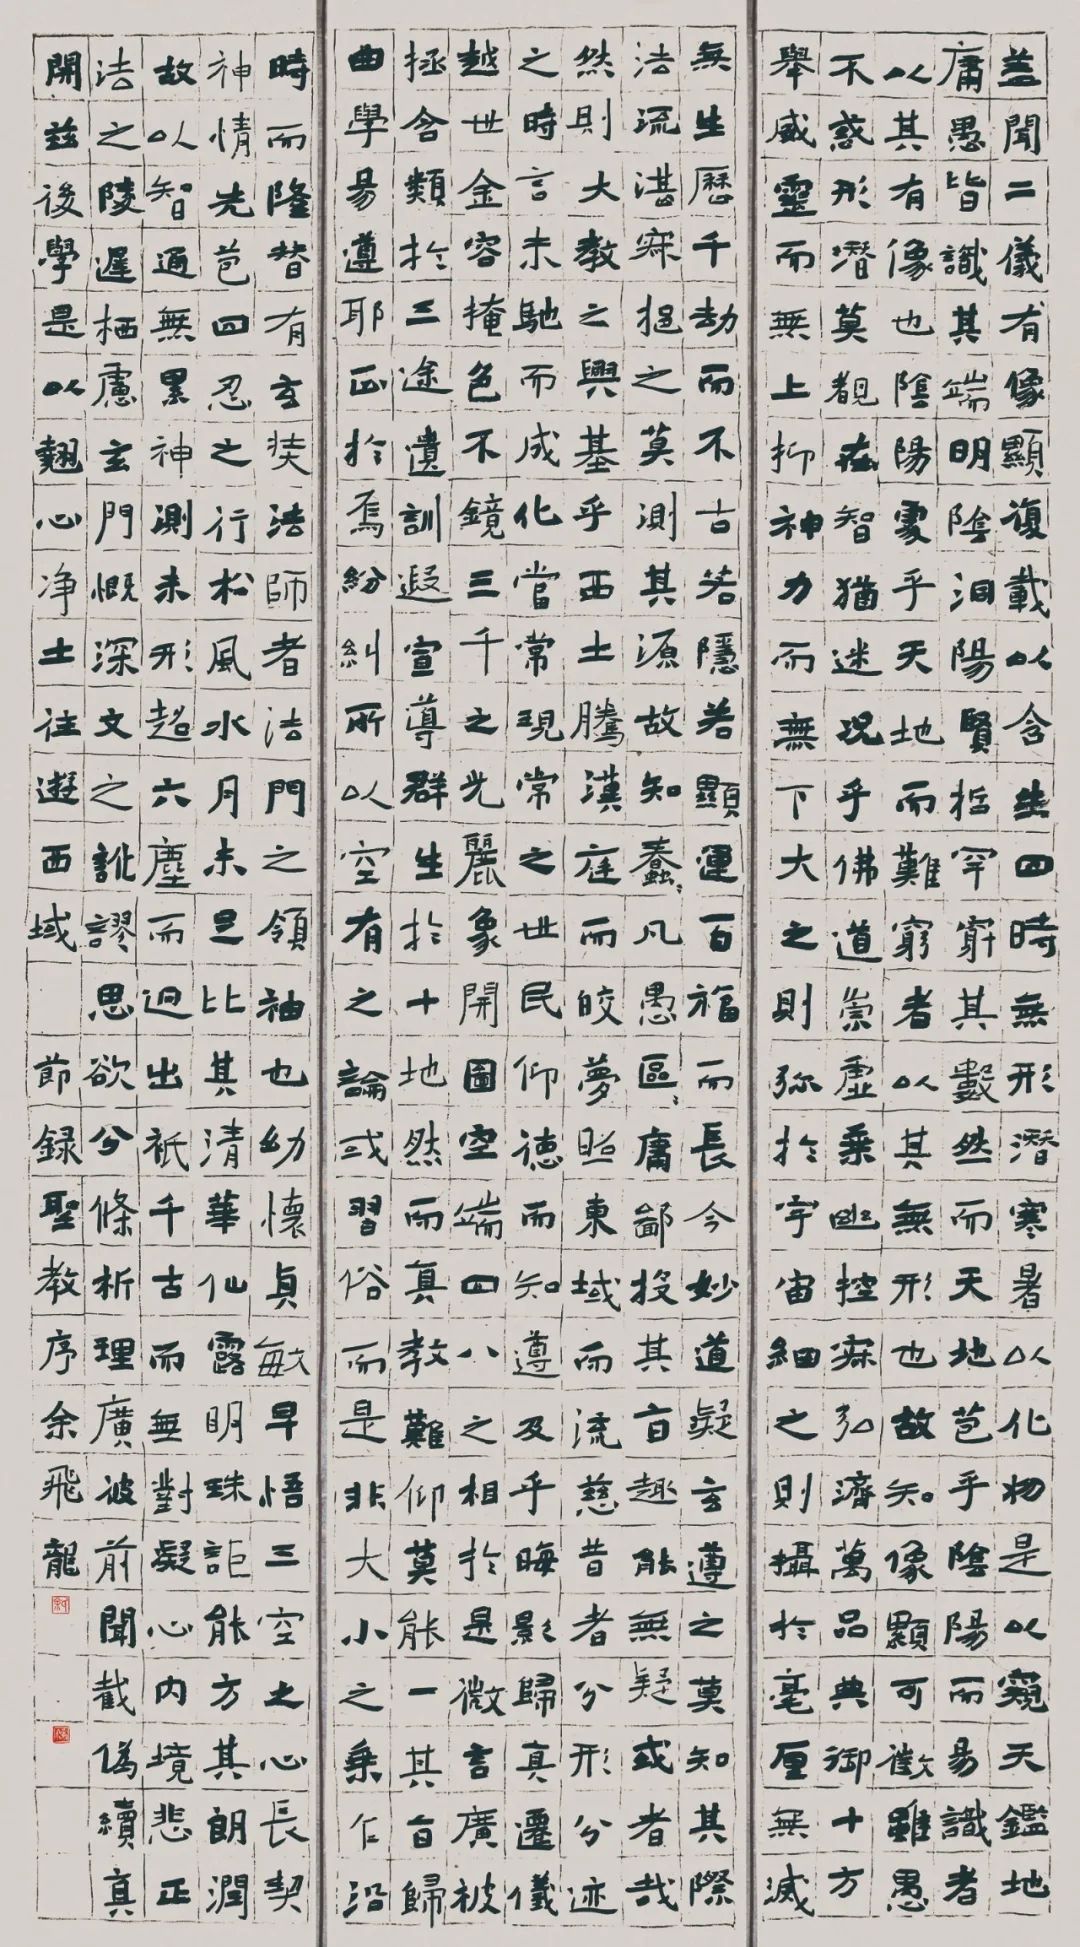 蓋聞二儀有像顯復載以含生四時無形潛寒暑以化物是以窺天鑑地
庸愚皆識其端明陰洎陽賢哲罕窮其數然而天地苞乎陰陽而易識者
以其有像也陰陽處乎天地而難窮者以其無形也故知像顯可徵雖愚
不惑形潛莫覩在智猶迷況乎佛道崇虛乘幽控寂弘濟萬品典御十方
舉威靈而無上抑神力而無下大之則彌於宇宙細之則攝於毫厘無滅
無生歷千劫而不古若隱若顯運百福而長今妙道凝玄遵之莫知其際
法流湛寂挹之莫測其源故知蠢々凡愚區々庸鄙投其旨趣能無疑或者哉
然則大教之興基乎西土騰漢庭而皎夢照東域而流慈昔者分形分迹
之時言未馳而成化當常現常之世民仰德而知遵及乎晦影歸真遷儀
越世金容掩色不鏡三千之光麗象開圖空端四八之相於是微言廣被
拯含類於三途遺訓遐宣導群生於十地然而真教難仰莫能一其旨歸
曲學易遵耶正於焉紛糾所以空有之論或習俗而是非大小之乘乍沿
時而隆替有玄奘法師者法門之領袖也幼懷貞敏早悟三空之心長契
神情先苞四忍之行松風水月未足比其清華仙露明珠詎能方其朗潤
故以智通無累神測未形超六塵而迥出祇千古而無對凝心內境悲正
法之陵遲栖慮玄門慨深文之訛謬思欲分條析理廣彼前聞截偽續真
開茲後學是以翹心淨土往遊西域 節錄聖教序余飛龍